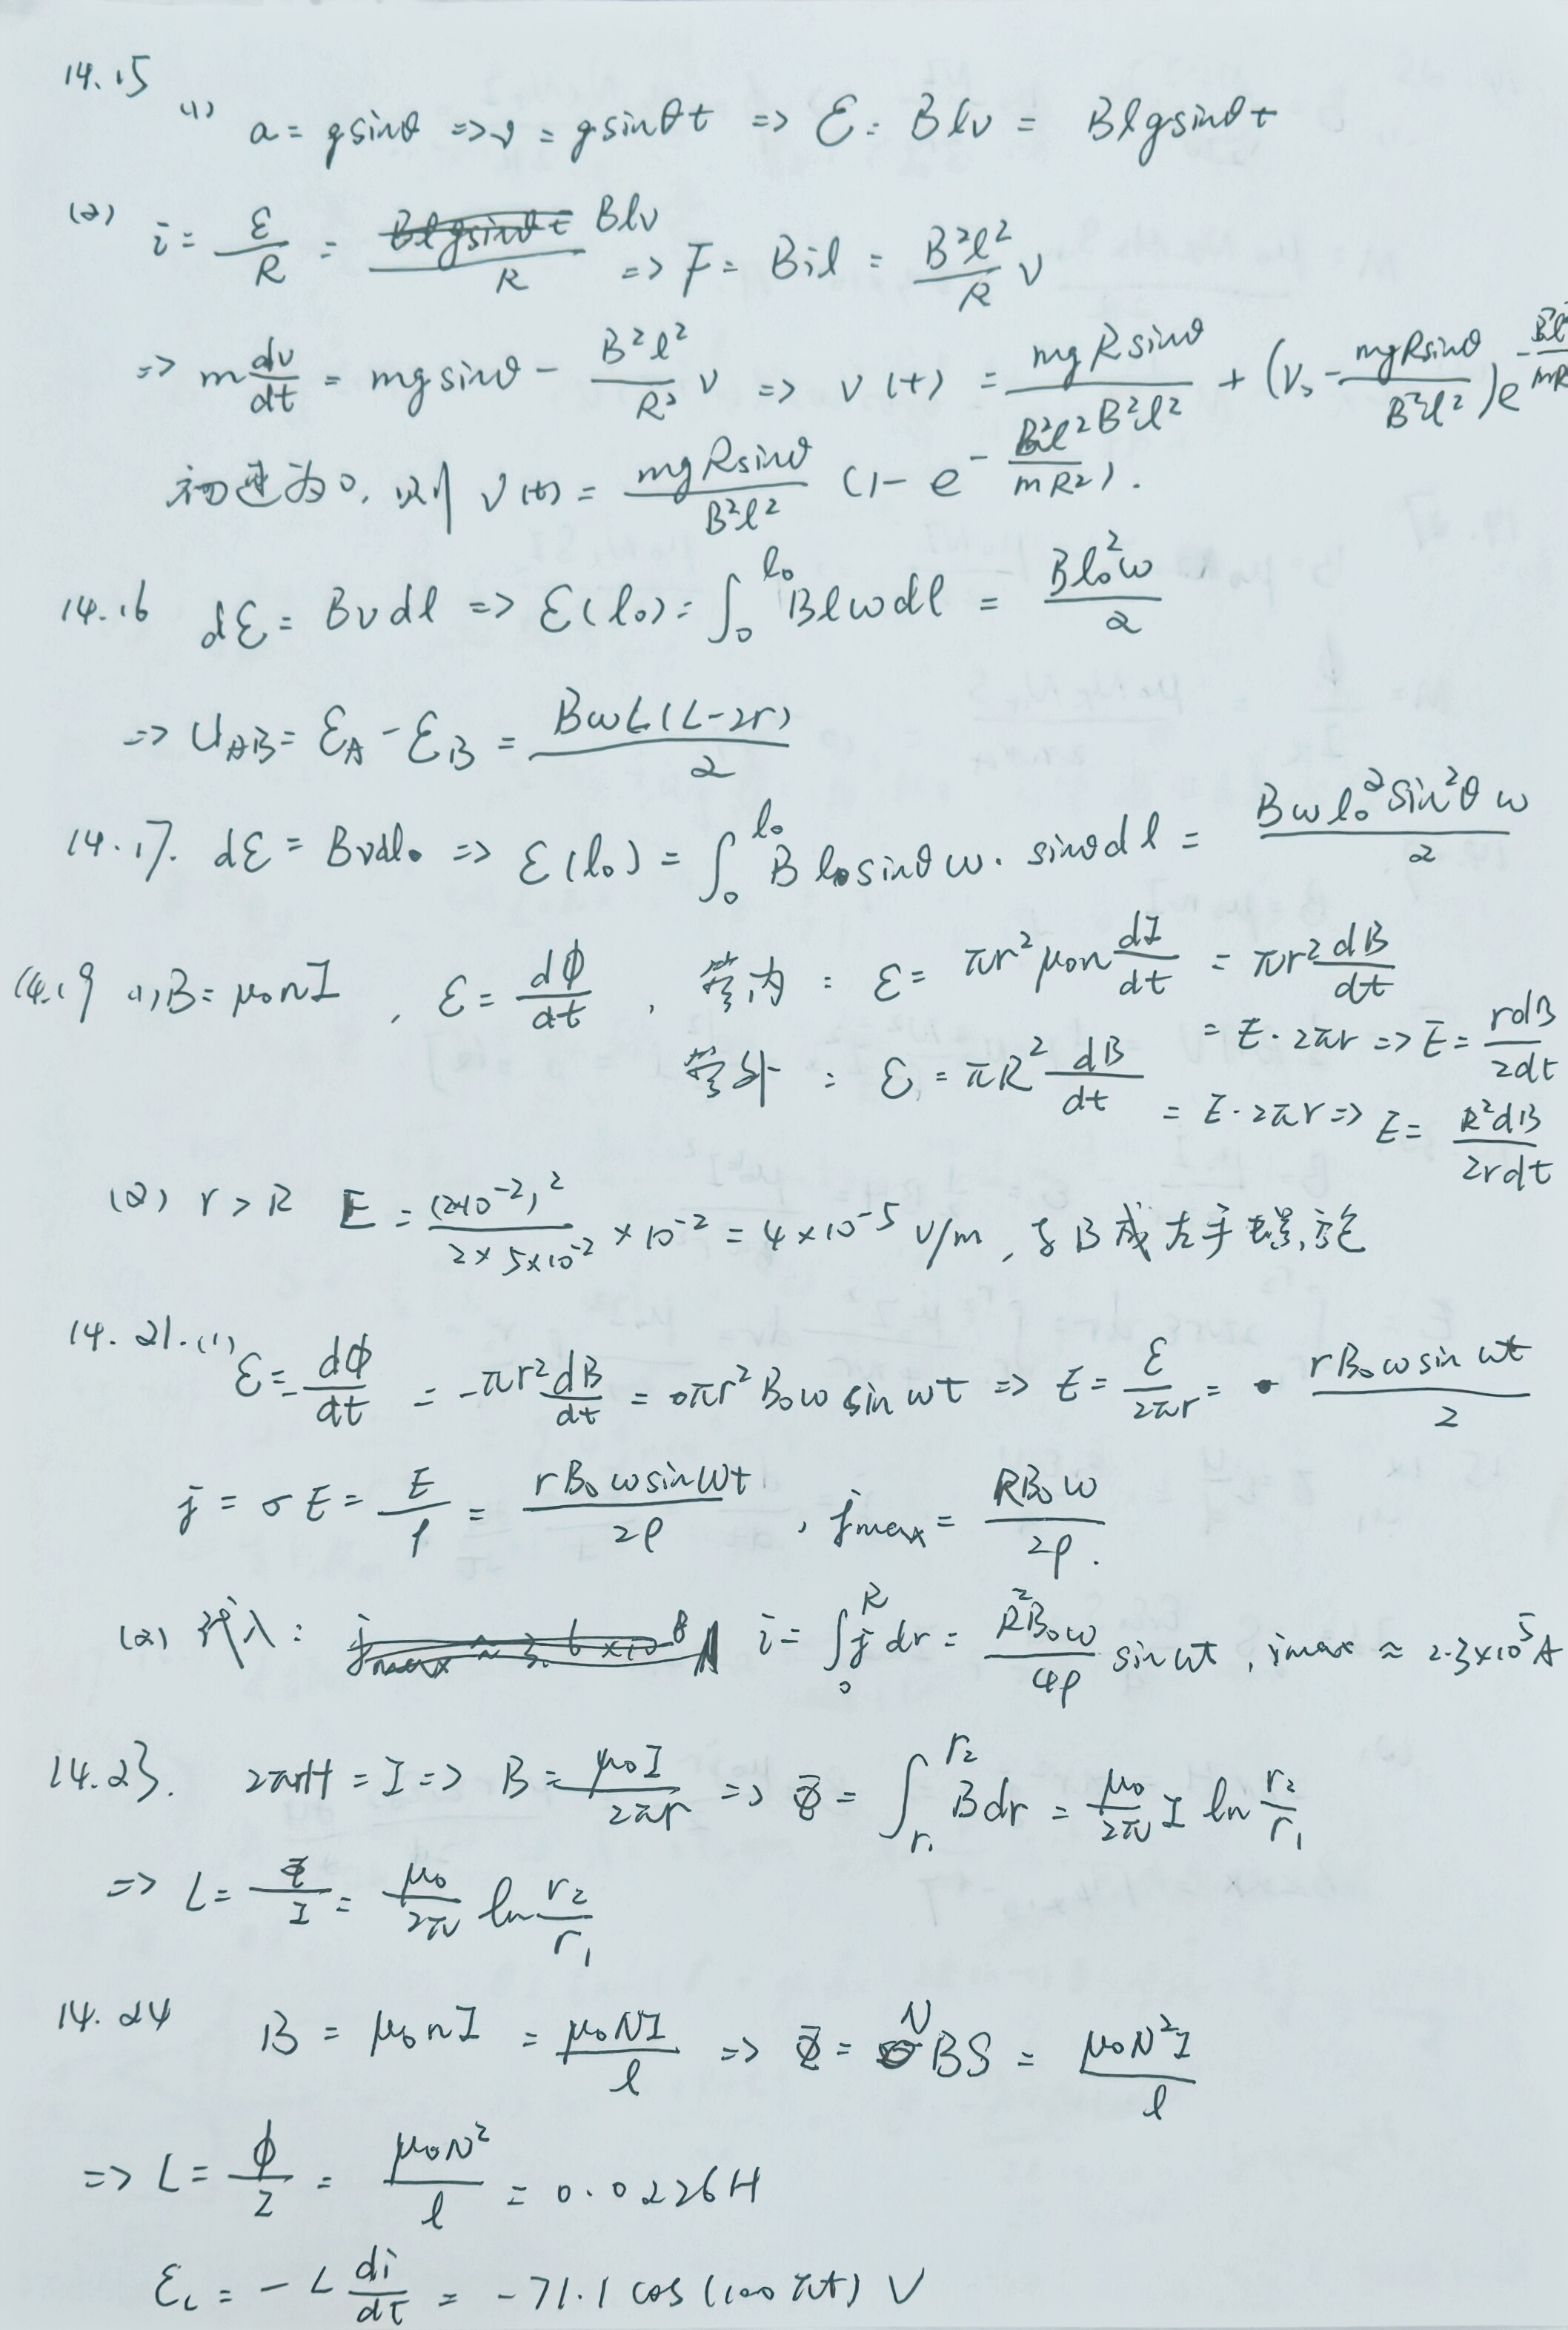 14.15
(1) a = g sinθ => v = g sinθ t => ℰ = Blv = Blg sinθ t
(2) i = ℰ/R = Blv/R => F = Bil = B²l²/R v
=> m dv/dt = mg sinθ - B²l²/R² v => v(t) = mgR sinθ/B²l² + (v₀ - mgR sinθ/B²l²) e^(-B²l²/mR
初速为0, 则 v(t) = mgR sinθ/B²l² (1 - e^(-B²l²/mR²)).
14.16 dℰ = Bv dl => ℰ(l₀) = ∫₀^l₀ Blω dl = Bl₀²ω/2
=> U_AB = ℰ_A - ℰ_B = BωL(L-2r)/2
14.17. dℰ = Bv dl. => ℰ(l₀) = ∫₀^l₀ B l sinθ ω · sinθ dl = Bω l₀² sin²θ ω/2
14.19 (1) B = μ₀nI , ℰ = dϕ/dt , 管内 : ℰ = πr²μ₀n dI/dt = πr² dB/dt
= E·2πr => E = r dB/2dt
管外 : ℰ = πR² dB/dt = E·2πr => E = R² dB/2r dt
(2) r > R E = (2×10⁻²)²/(2×5×10⁻²) × 10⁻² = 4×10⁻⁵ V/m, 与B成左手螺旋
14.21.(1) ℰ = -dϕ/dt = -πr² dB/dt = πr² B₀ω sin ωt => E = ℰ/2πr = rB₀ω sin ωt/2
j = σE = E/ρ = rB₀ω sin ωt/2ρ , j_max = RB₀ω/2ρ.
(2) 代入: i = ∫₀^R j dr = R²B₀ω/4ρ sin ωt , i_max ≈ 2.3×10⁵ A
14.23. 2πrH = I => B = μ₀I/2πr => Φ = ∫_r₁^r₂ B dr = μ₀/2π I ln r₂/r₁
=> L = Φ/I = μ₀/2π ln r₂/r₁
14.24 B = μ₀nI = μ₀NI/l => Φ = NBS = μ₀N²I/l
=> L = ϕ/I = μ₀N²/l = 0.0226H
ℰ_L = - L di/dt = -71.1 cos(100πt) V